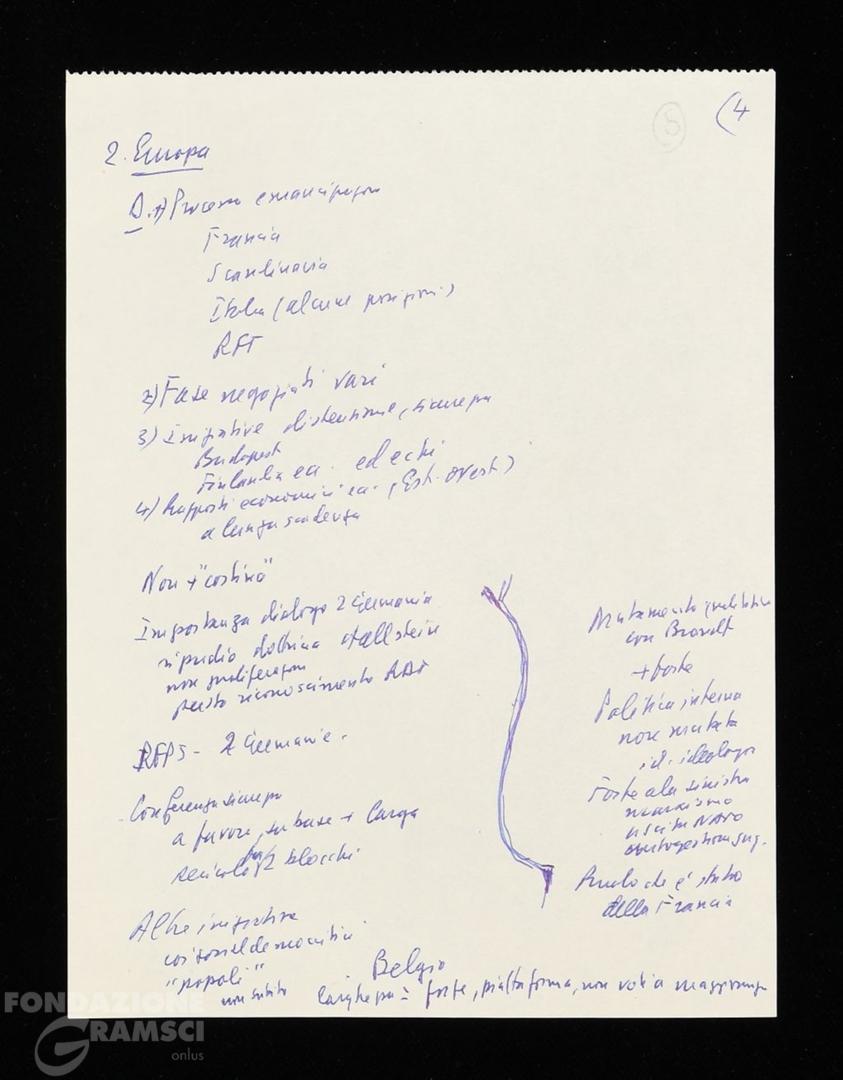 (4
5
2. Europa
1) Processo emancipazione
Francia
Scandinavia
Italia (alcune posizioni)
RFT
2) Fase negoziati vari
3) Iniziative distensione, sicurezza
Budapest
Finlandia ecc. ed echi
4) Rapporti economici ecc. (Est-ovest)
a lunga scadenza
Non +
Importanza dialogo 2 Germanie
ripudio dottrina Hallstein
non proliferazione
riconoscimento RDT
2 Germanie.
Conferenza sicurezza
a favore, su base + larga
2 blocchi
Altre iniziative
"popoli"
non subito
Mutamento qualitativo
con Brandt
+ forte
Politica interna
non mutata
id. ideologia
Forte ala sinistra
marxismo
uscita NATO
Ruolo che è stato
della Francia
Belgio
forte, piattaforma, non voti a maggioranza
FONDAZIONE
GRAMSCI
onlus